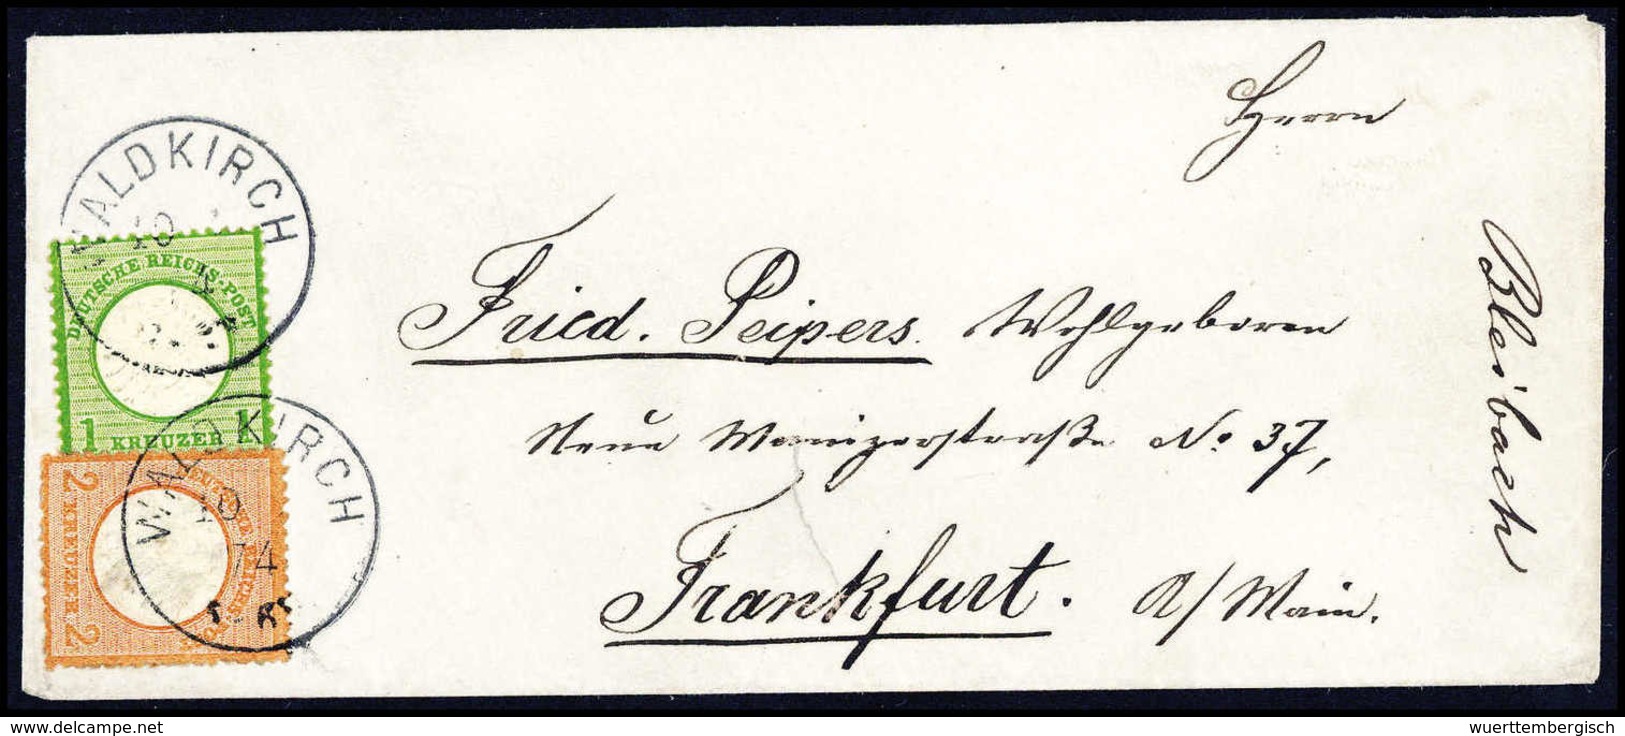 Herrn
Fried. Peipers Wohlgeboren
Neue Mainzerstraße No. 37,
Frankfurt. a/Main.
Bleibach
WALDKIRCH
10
DEUTSCHE REICHS-POST
1 KREUZER 1
WALDKIRCH
10
74
2 KREUZER 2
www.delcampe.net
wuerttembergisch